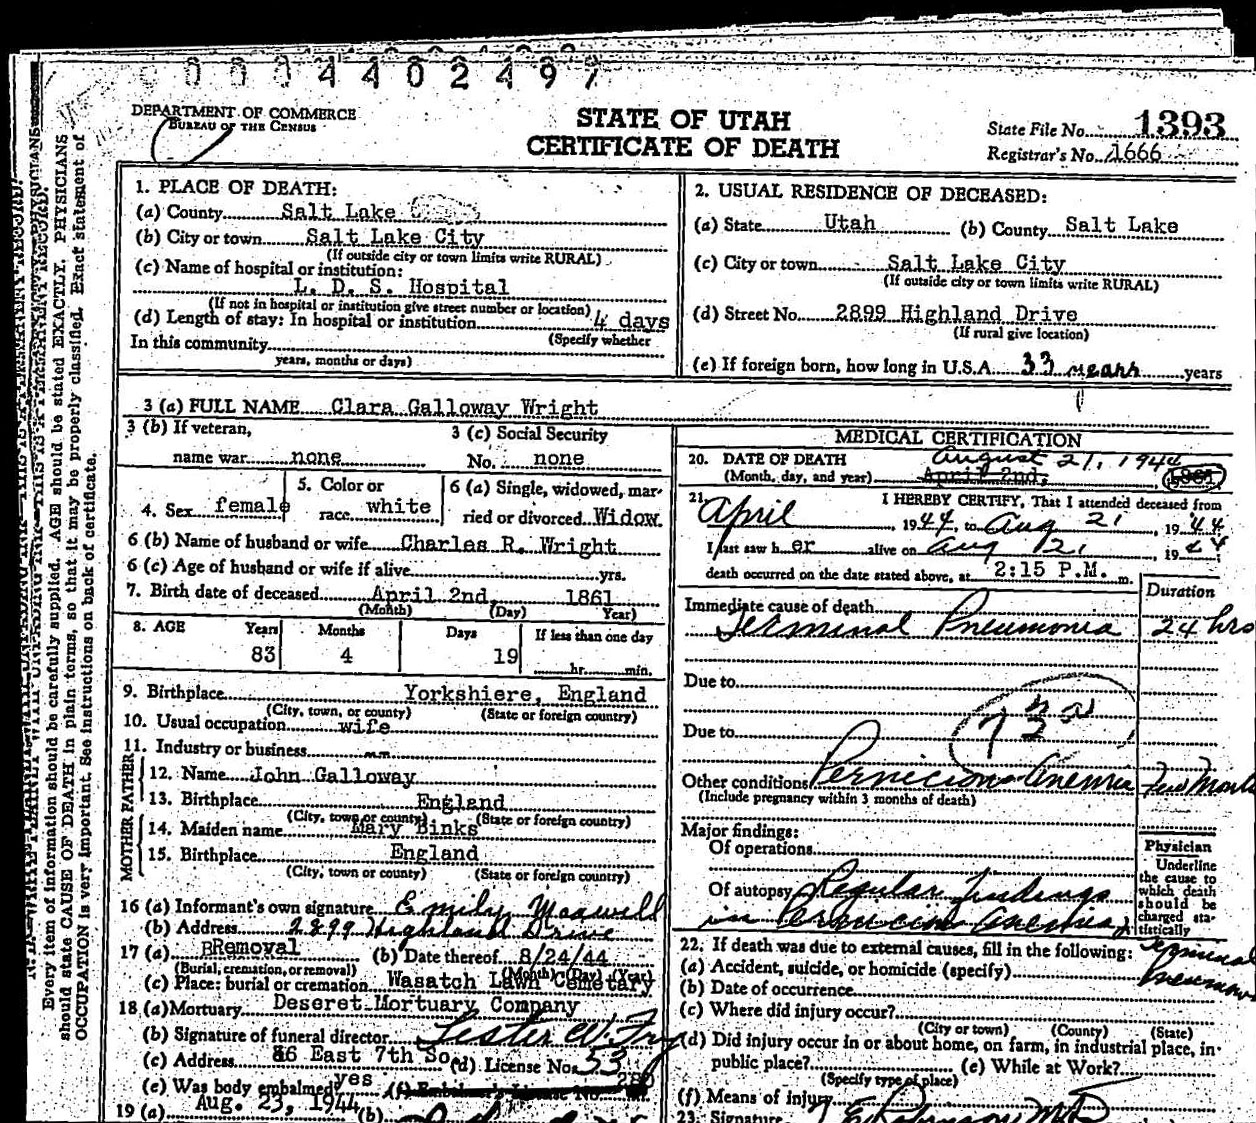 0004402497
DEPARTMENT OF COMMERCE
BUREAU OF THE CENSUS
STATE OF UTAH
CERTIFICATE OF DEATH
State File No. 1393
Registrar's No. 1666
Every item of information should be carefully supplied. AGE should be stated EXACTLY. PHYSICIANS
should state CAUSE OF DEATH in plain terms, so that it may be properly classified. Exact statement of
OCCUPATION is very important. See instructions on back of certificate.
1. PLACE OF DEATH:
(a) County Salt Lake
(b) City or town Salt Lake City
(If outside city or town limits write RURAL)
(c) Name of hospital or institution:
L. D. S. Hospital
(If not in hospital or institution give street number or location)
(d) Length of stay: In hospital or institution 4 days
(Specify whether
In this community
years, months or days)
2. USUAL RESIDENCE OF DECEASED:
(a) State Utah (b) County Salt Lake
(c) City or town Salt Lake City
(If outside city or town limits write RURAL)
(d) Street No. 2899 Highland Drive
(If rural give location)
(e) If foreign born, how long in U.S.A. 33 years years
3 (a) FULL NAME Clara Galloway Wright
3 (b) If veteran,
name war none
3 (c) Social Security
No. none
4. Sex female
5. Color or
race white
6 (a) Single, widowed, mar-
ried or divorced Widow
6 (b) Name of husband or wife Charles R. Wright
6 (c) Age of husband or wife if alive yrs.
7. Birth date of deceased April 2nd, 1861
(Month) (Day) Year)
8. AGE Years Months Days If less than one day
83 4 19 hr. min.
9. Birthplace Yorkshiere, England
(City, town, or county) (State or foreign country)
10. Usual occupation wife
11. Industry or business
FATHER
12. Name John Galloway
13. Birthplace England
(City, town or county) (State or foreign country)
MOTHER
14. Maiden name Mary Binks
15. Birthplace England
(City, town or county) (State or foreign country)
16 (a) Informant's own signature Emily Maxwell
(b) Address 2899 Highland Drive
17 (a) Removal (b) Date thereof 8/24/44
(Burial, cremation, or removal) (Month) (Day) (Year)
(c) Place: burial or cremation Wasatch Lawn Cemetary
18 (a) Mortuary Deseret Mortuary Company
(b) Signature of funeral director Lester W. Fry
(c) Address 36 East 7th So. (d) License No. 53
(e) Was body embalmed yes (f) Embalmer's License No.
19 (a) Aug. 23, 1944 (b)
MEDICAL CERTIFICATION
20. DATE OF DEATH August 21, 1944
(Month, day, and year) April 2nd, 1861
21. I HEREBY CERTIFY, That I attended deceased from
April, 1944, to Aug 21, 1944
I last saw her alive on Aug 21, 1944
death occurred on the date stated above, at 2:15 P.M. m.
Duration
Immediate cause of death
Terminal Pneumonia 24 hrs
Due to
Due to
Other conditions Pernicious Anemia Few Months
(Include pregnancy within 3 months of death)
Major findings:
Of operations
Of autopsy Regular findings
in Pernicious Anemia &
Terminal
Pneumonia
Physician
Underline
the cause to
which death
should be
charged sta-
tistically
22. If death was due to external causes, fill in the following:
(a) Accident, suicide, or homicide (specify)
(b) Date of occurrence
(c) Where did injury occur?
(City or town) (County) (State)
(d) Did injury occur in or about home, on farm, in industrial place, in
public place? (e) While at Work?
(Specify type of place)
(f) Means of injury
23. Signature E Robinson MD